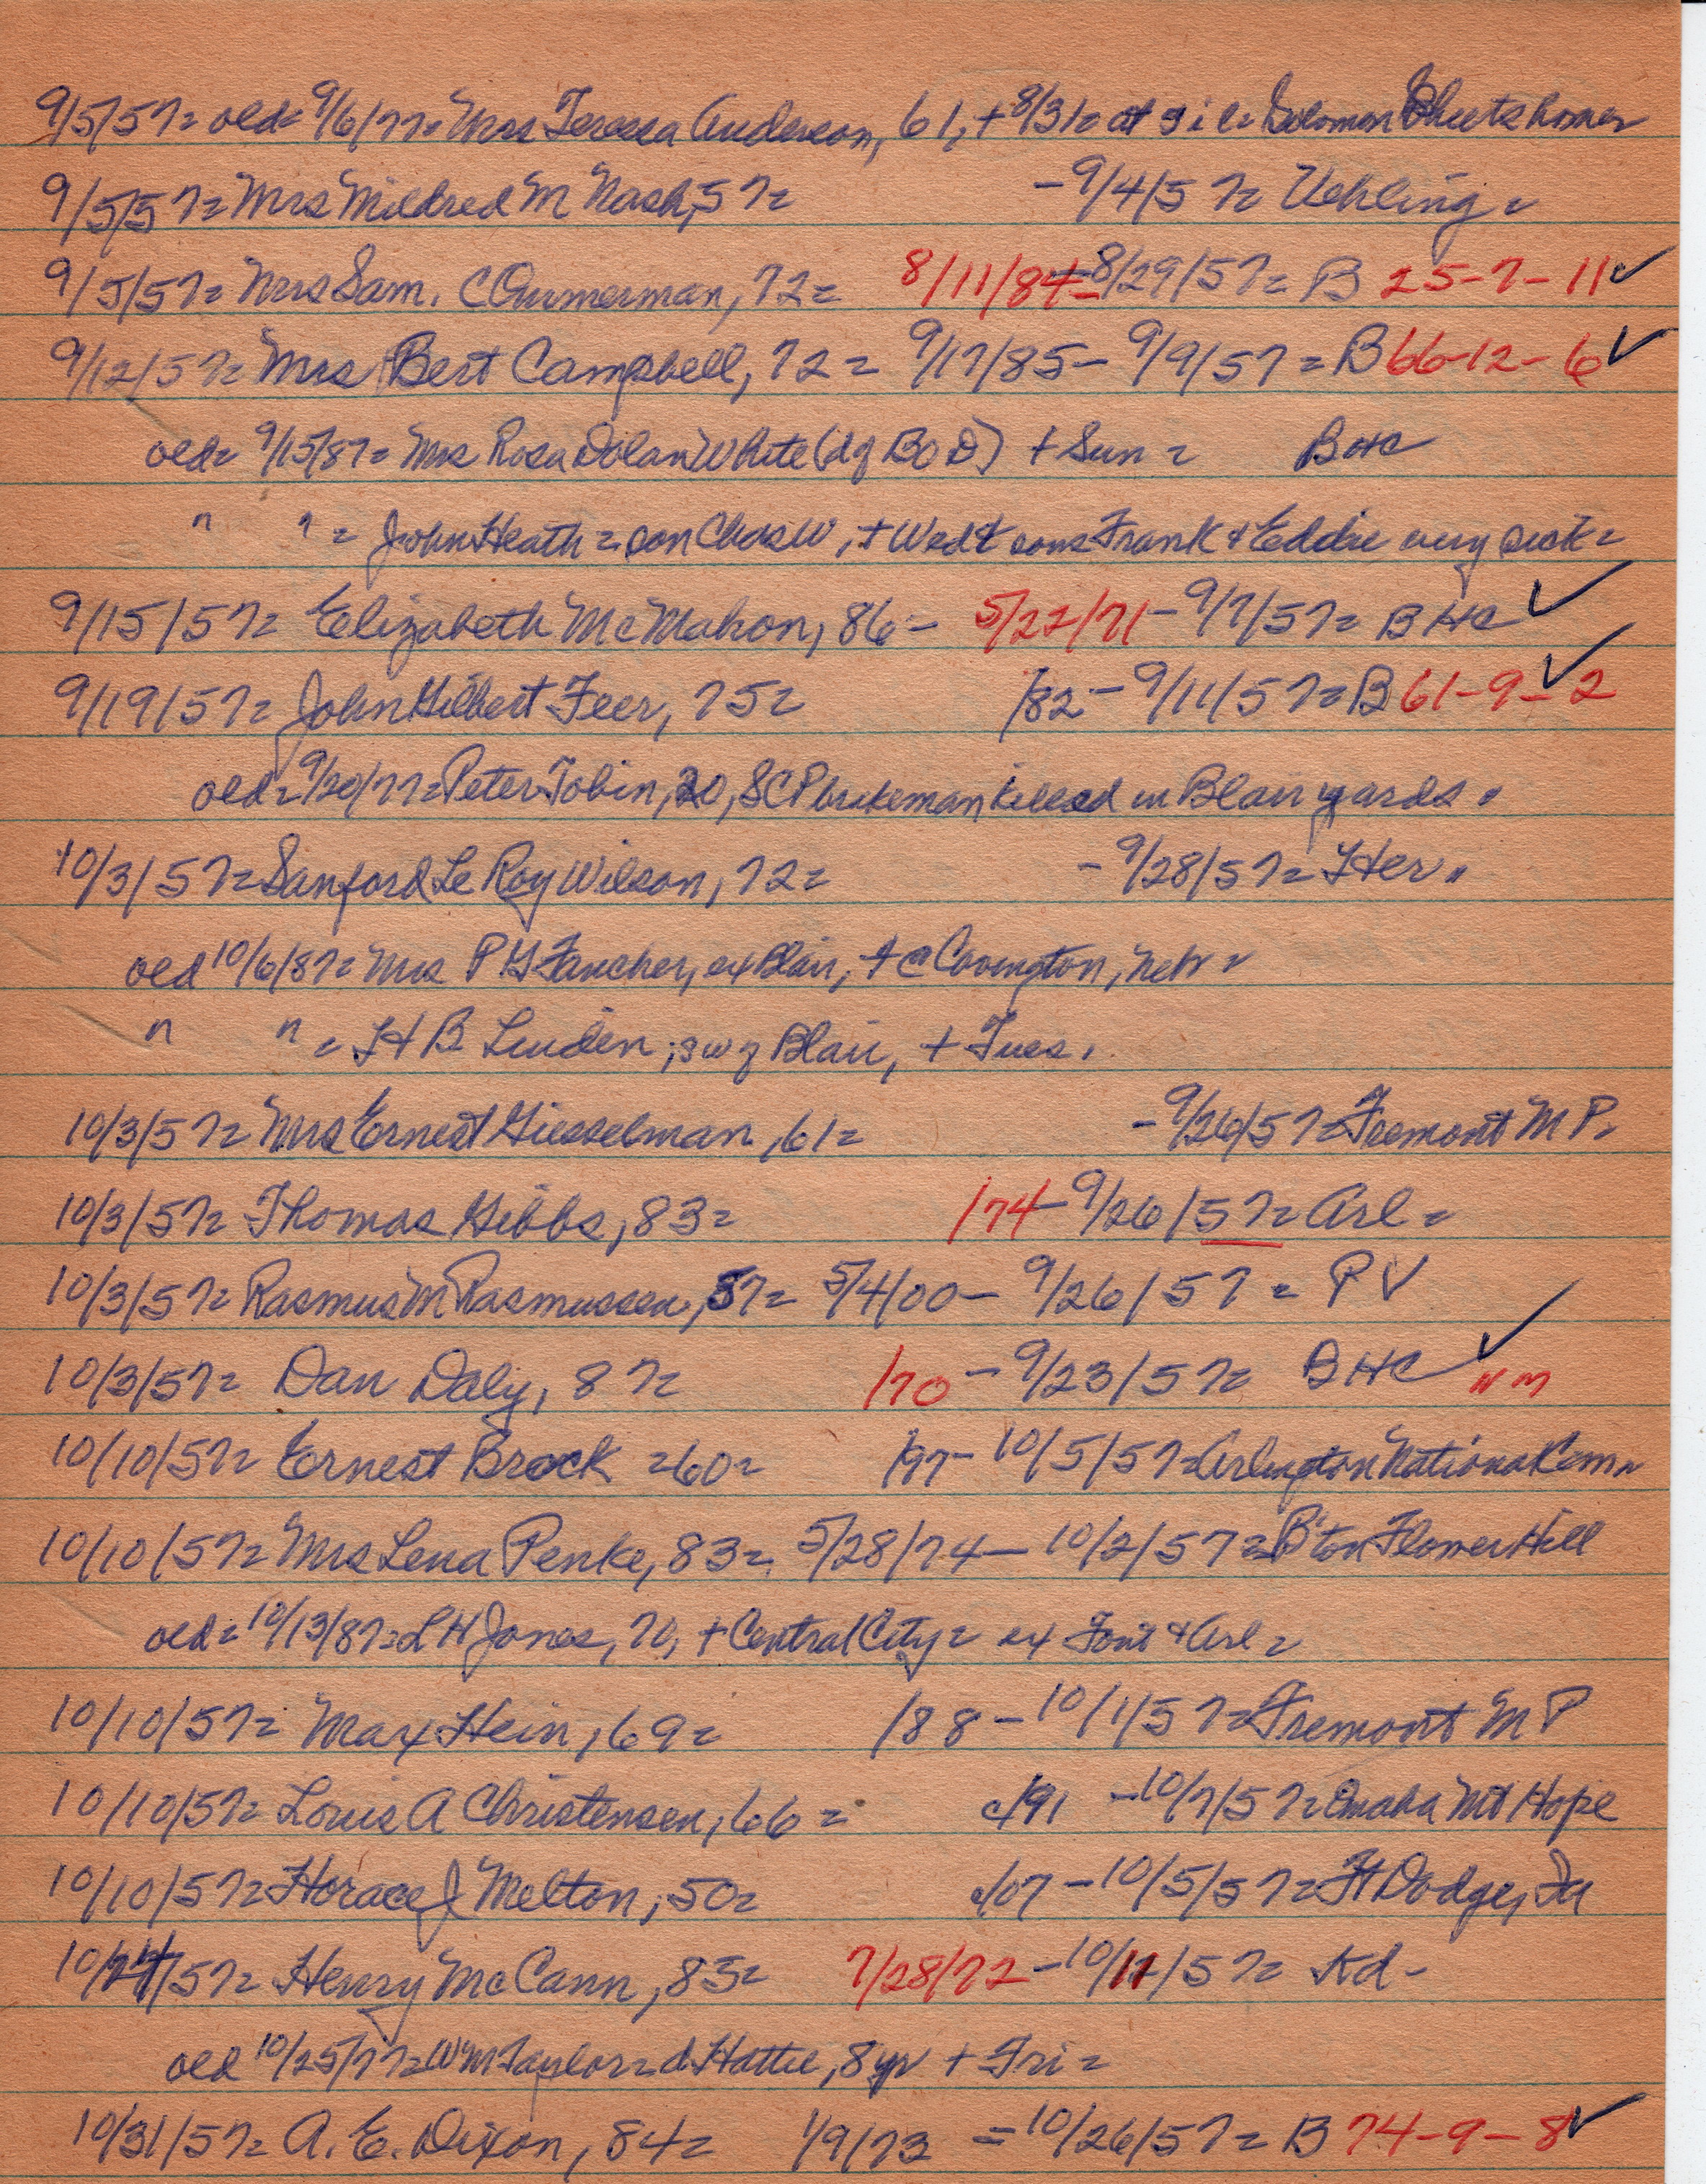 9/5/57= old= 9/6/77= Mrs Teresa Anderson, 61, + 8/31= at s i l= Solomon Sheets home=
9/5/57= Mrs Mildred M Nash, 57= - 9/4/57= Uehling=
9/5/57= Mrs Sam. C Ammerman, 72= 8/11/84 - 8/29/57= B 25-7-11 ✓
9/12/57= Mrs Bert Campbell, 72= 9/17/85 - 9/9/57= B 66-12-6 ✓
old= 9/15/87= Mrs Rosa Dolan White (dg B O D) + Sun= B HC
" " = John Heath= son Chas W, + Wed & sons Frank & Eddie very sick=
9/15/57= Elizabeth McMahon, 86- 5/22/71 - 9/7/57= B HC ✓
9/19/57= John Gilbert Feer, 75= /82 - 9/11/57= B 61-9-2 ✓
old= 9/20/77= Peter Tobin, 20, S C P brakeman killed in Blair yards=
10/3/57= Sanford Le Roy Wilson, 72= - 9/28/57= Her=
old 10/6/87= Mrs P G Fancher, ex Blair, + @ Covington, Nebr=
" " = H B Linden, sw of Blair, + Tues.
10/3/57= Mrs Ernest Giesselman, 61= - 9/26/57= Fremont M P.
10/3/57= Thomas Gibbs, 83= /74 - 9/26/57= Arl=
10/3/57= Rasmus M Rasmussen, 57= 5/4/00 - 9/26/57= P V
10/3/57= Dan Daly, 87= /70 - 9/23/57= B HC ✓ " m
10/10/57= Ernest Brock =60= /97 - 10/5/57= Arlington National Cem=
10/10/57= Mrs Lena Penke, 83= 5/28/74 - 10/2/57= B'ton Flower Hill
old= 10/13/87= L H Jones, 70, + Central City= ex Font & Arl=
10/10/57= Max Hein, 69= /88 - 10/1/57= Fremont M P
10/10/57= Louis A Christensen, 66= c/91 - 10/7/57= Omaha Mt Hope
10/10/57= Horace J Melton, 50= c/07 - 10/5/57= Ft Dodge, Ia
10/24/57= Henry McCann, 85= 7/28/72 - 10/11/57= Kd-
old 10/25/77= Wm Taylor= d Hattie, 8 yr + Fri=
10/31/57= A. E. Dixon, 84= 1/9/73 = 10/26/57= B 74-9-8 ✓